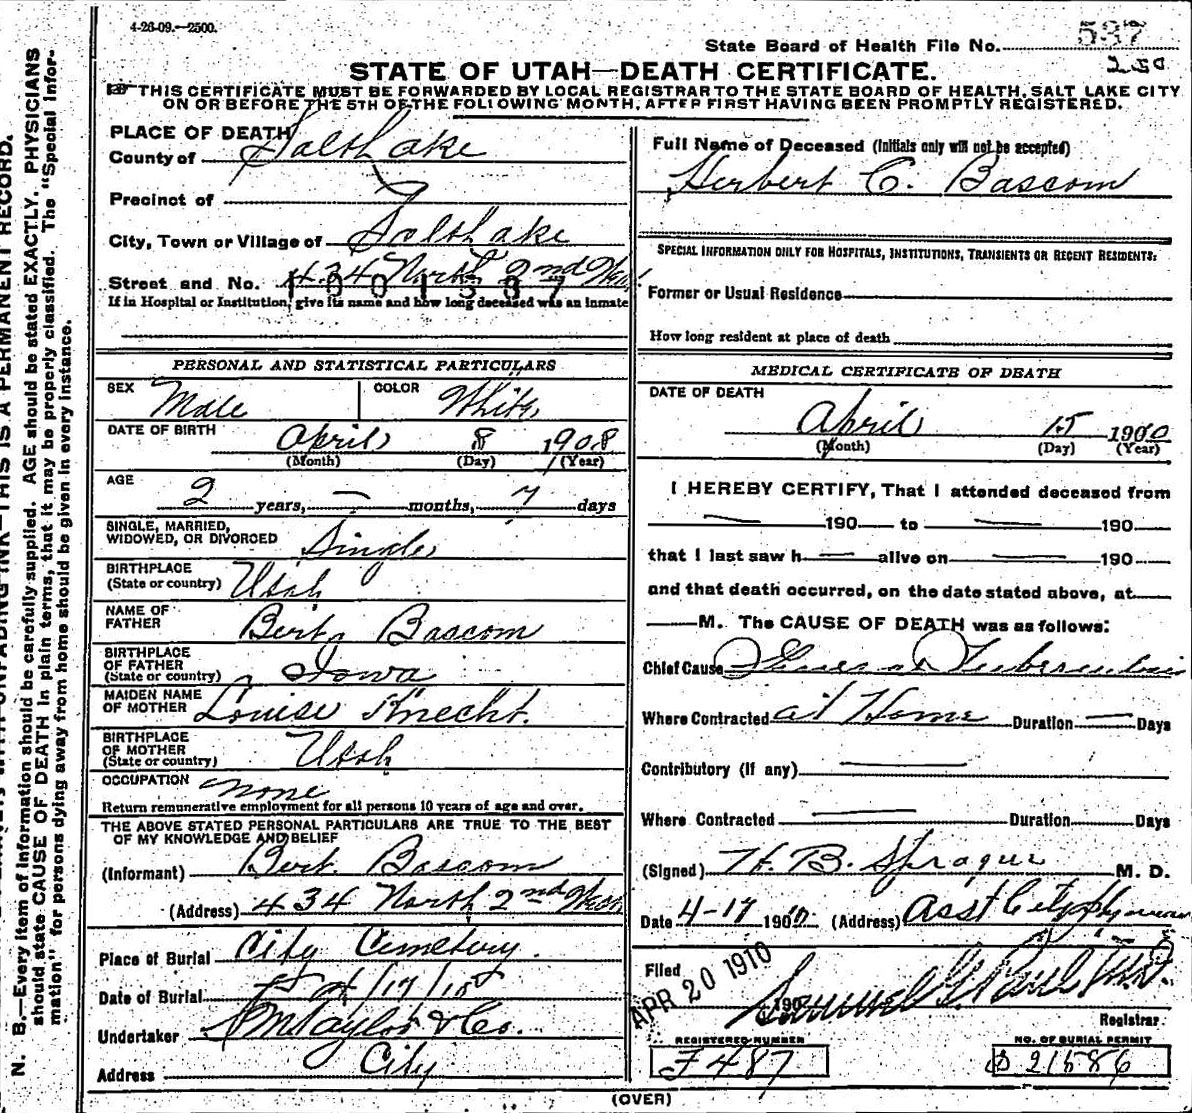 4-26-09.—2500.
State Board of Health File No. 537
250
STATE OF UTAH—DEATH CERTIFICATE.
THIS CERTIFICATE MUST BE FORWARDED BY LOCAL REGISTRAR TO THE STATE BOARD OF HEALTH, SALT LAKE CITY
ON OR BEFORE THE 5TH OF THE FOLLOWING MONTH, AFTER FIRST HAVING BEEN PROMPTLY REGISTERED.
PLACE OF DEATH
County of Salt Lake
Precinct of
City, Town or Village of Salt Lake
Street and No. 434 North 2nd West
1001537
If in Hospital or Institution, give its name and how long deceased was an inmate
Full Name of Deceased (Initials only will not be accepted)
Herbert C. Bascom
SPECIAL INFORMATION ONLY FOR HOSPITALS, INSTITUTIONS, TRANSIENTS OR RECENT RESIDENTS:
Former or Usual Residence
How long resident at place of death
PERSONAL AND STATISTICAL PARTICULARS
SEX Male COLOR White
DATE OF BIRTH April 8 1908
(Month) (Day) (Year)
AGE 2 years, — months, 7 days
SINGLE, MARRIED,
WIDOWED, OR DIVORCED Single
BIRTHPLACE
(State or country) Utah
NAME OF
FATHER Bert Bascom
BIRTHPLACE
OF FATHER
(State or country) Iowa
MAIDEN NAME
OF MOTHER Louise Knecht.
BIRTHPLACE
OF MOTHER
(State or country) Utah
OCCUPATION none
Return remunerative employment for all persons 10 years of age and over.
THE ABOVE STATED PERSONAL PARTICULARS ARE TRUE TO THE BEST
OF MY KNOWLEDGE AND BELIEF
(Informant) Bert Bascom
(Address) 434 North 2nd West
Place of Burial City Cemetery.
Date of Burial 4/17/10
Undertaker S M Taylor & Co.
Address City
MEDICAL CERTIFICATE OF DEATH
DATE OF DEATH
April 15 1910
(Month) (Day) (Year)
I HEREBY CERTIFY, That I attended deceased from
— 190 — to — 190
that I last saw h — alive on — 190
and that death occurred, on the date stated above, at
M. The CAUSE OF DEATH was as follows:
Chief Cause General Tuberculosis
Where Contracted at Home Duration — Days
Contributory (if any) —
Where Contracted — Duration Days
(Signed) H. B. Sprague M. D.
Date 4-17 1910 (Address) Asst City Physician
Filed APR 20 1910 190
Samuel G. Paul M.D.
Registrar
REGISTERED NUMBER
F 487
NO. OF BURIAL PERMIT
B 21586
(OVER)
N. B.—Every item of information should be carefully supplied. AGE should be stated EXACTLY. PHYSICIANS
should state CAUSE OF DEATH in plain terms, that it may be properly classified. The "Special Infor-
mation" for persons dying away from home should be given in every instance.
UNFADING INK—THIS IS A PERMANENT RECORD.